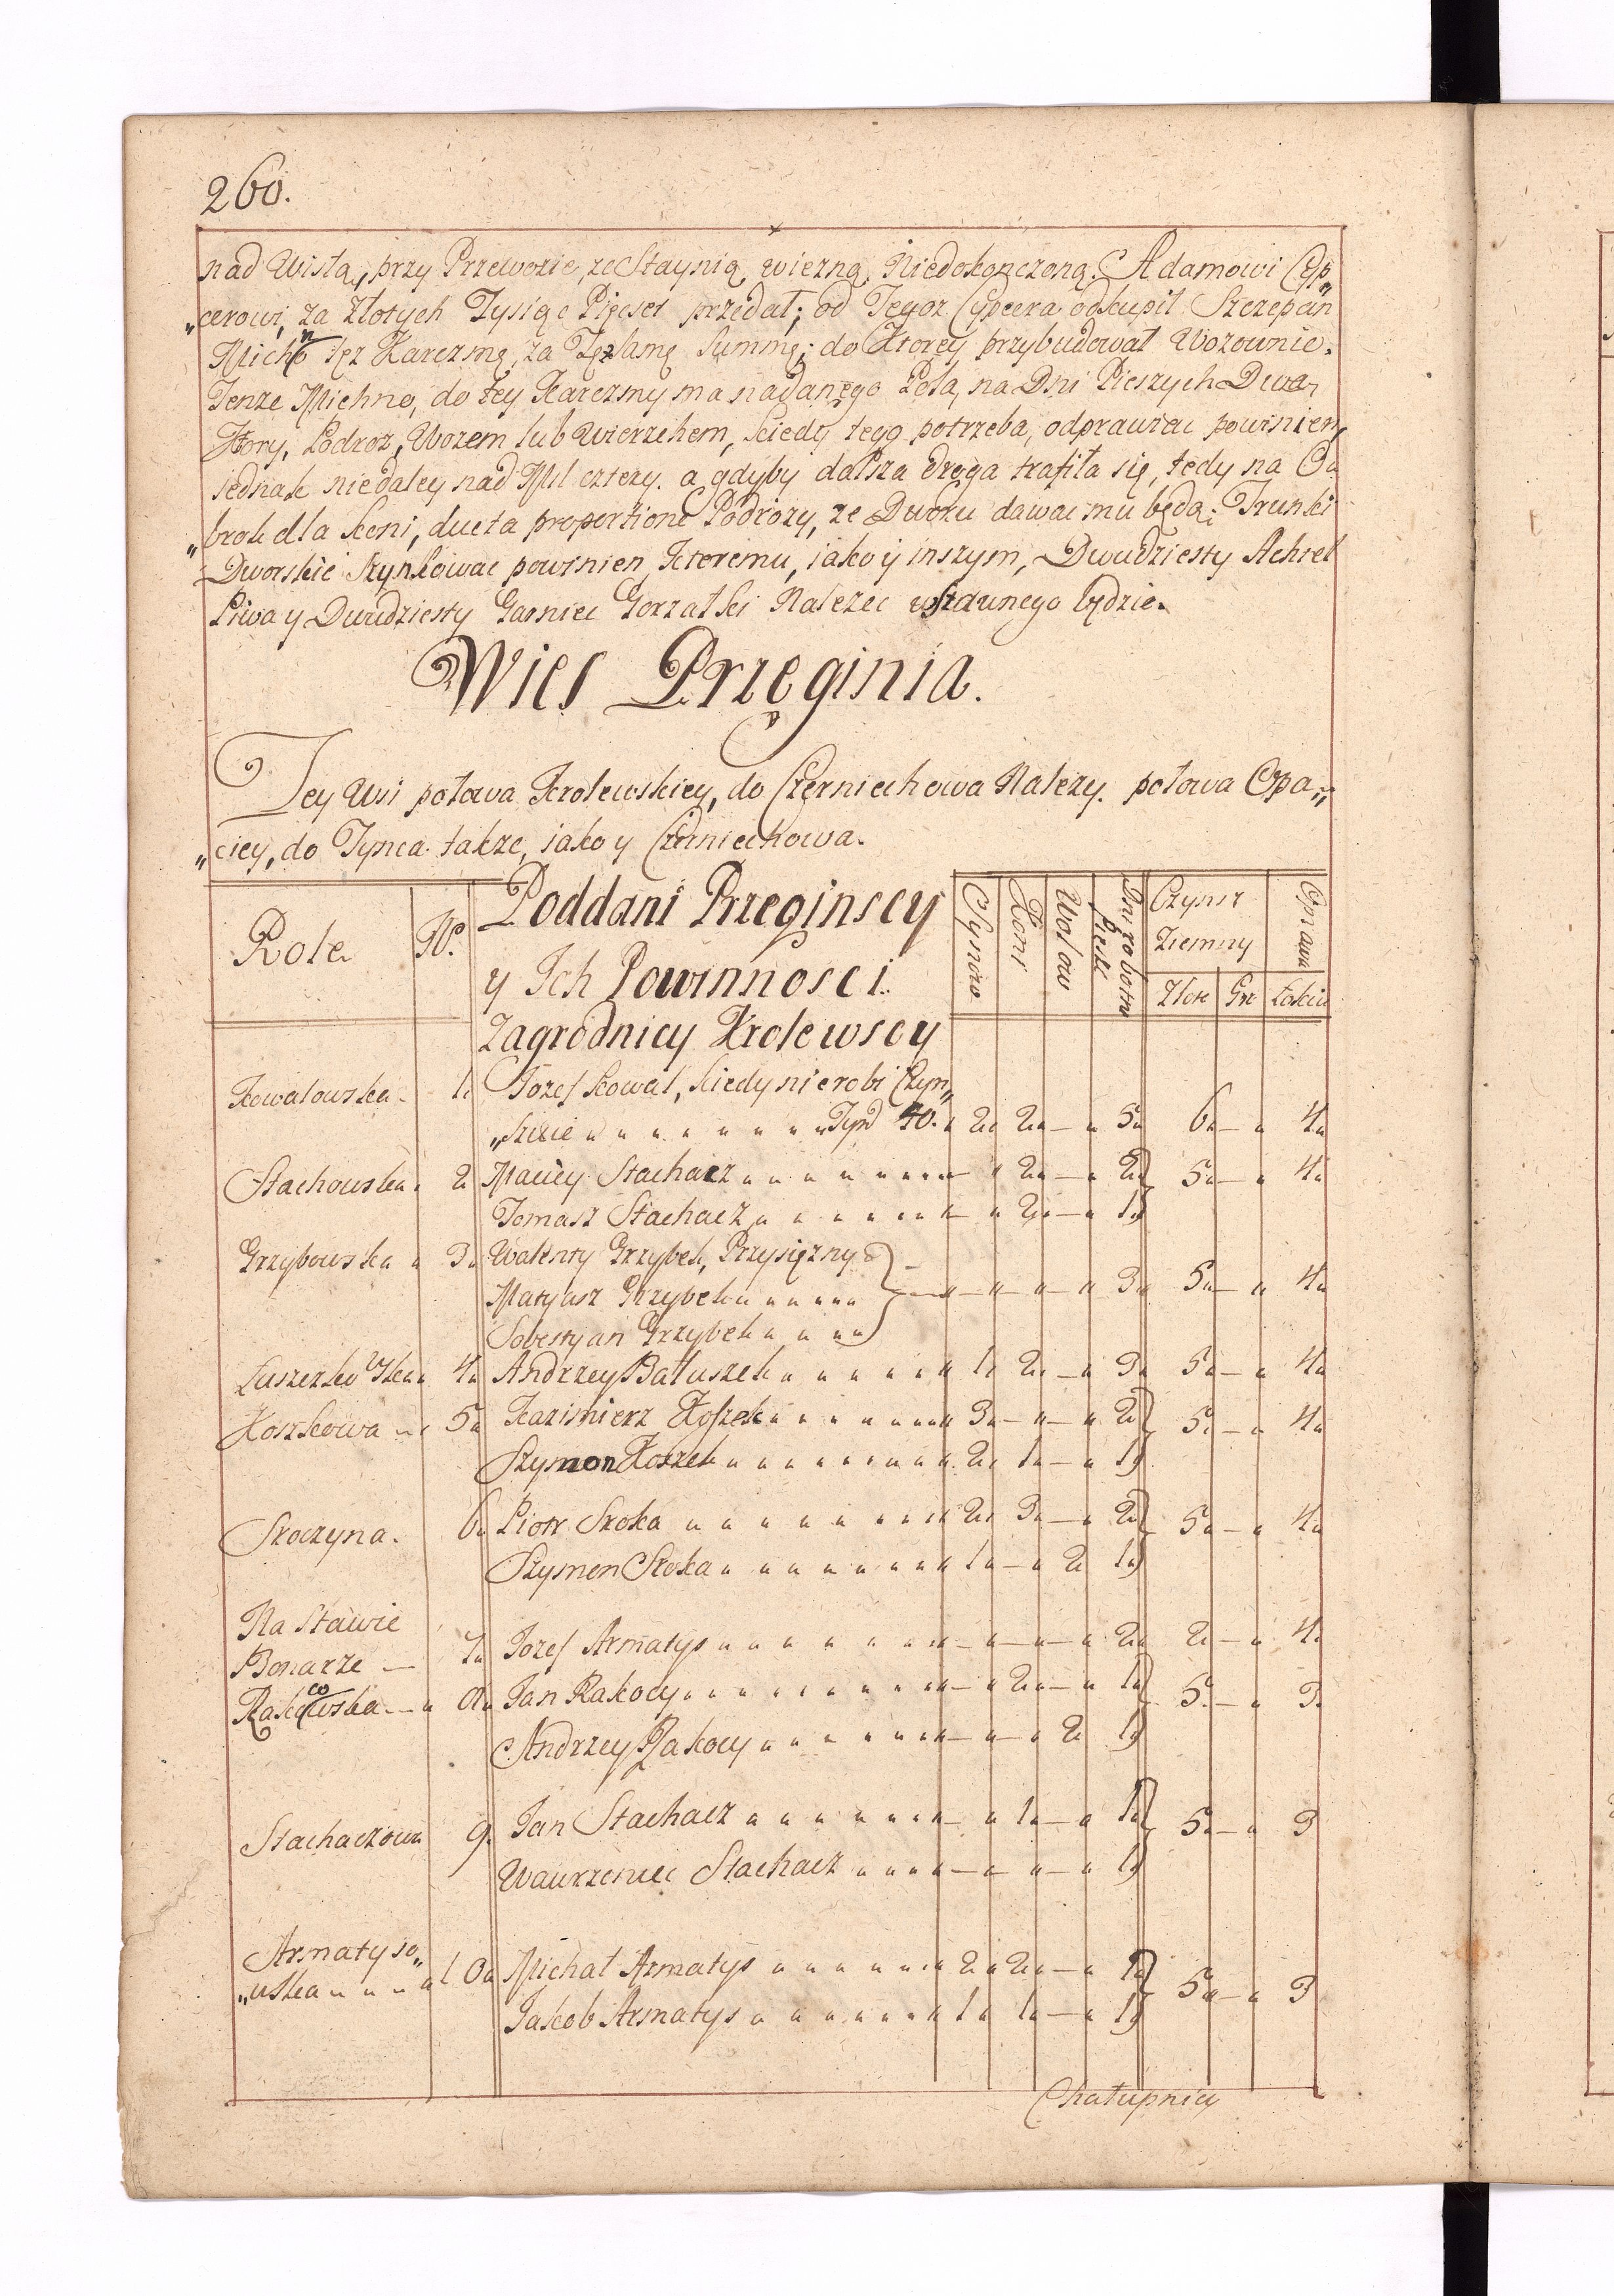 260.
nad Wisłą, przy Przewozie, ze Staynią wiezną, Niedokonczoną. Adamowi Cyp„
„cerowi, za Złotych Tysiąc Pięcset przedał; od Tegoz Cypcera odkupił Szczepan
Michno tęz Karczmę, za Tęzsamę Summę; do Ktorey przybudował Wozownie.
Tenze Michno, do tey Karczmy ma nadanego Pola, na Dni Pieszych Dwa,
Ktory, Podroz, Wozem lub Wierzchem, kiedy tego potrzeba, odprawiac powinien,
jednak niedaley nad Mil cztery. a gdyby dalsza droga trafiła się, tedy na O„
„brok dla koni, ducta proportione Podrozy, ze Dworu dawac mu będą; Trunki
Dworskie Szynkowac powinien, ktoremu, jako y inszym, Dwudziesty Achtel
Piwa y Dwudziesty Garniec Gorzałki Nalezec wszaunego będzie.
Wies Przeginia.
Tey Wsi połowa Krolewskiey, do Czerniechowa Nalezy. połowa Opa„
„ciey, do Tynca także, jako y Czerniechowa.
Role Nº. Poddani Przeginscy Synow Koni Wołow Dni robotne Pieski Czynsz Ziemny Oprawa
y Ich Powinnosci. Złote Gr Łokcie
Zagrodnicy Krolewscy
Kowalowska 1 Jozef Kowal, kiedy nie robi Czyn„
„szuie Tynd 40. 2 2 — 5 6 — 4
Stachowska 2 Maciey Stachacz — 2 — 2 5 — 4
Tomasz Stachacz — 2 — 1
Grzybowska 3 Walenty Grzybek, Przysięzny
Matyasz Grzybek — — — 3 5 — 4
Sobestyan Grzybek
Łuszczkowska 4 Andrzey Batuszek 1 2 — 3 5 — 4
Koszkowa 5 Kazimierz Koszek 3 — — 2 5 — 4
Szymon Koszek 2 1 — 1
Skoczyna 6 Piotr Skoka 2 3 — 2 5 — 4
Szymon Skoka 1 — 2 1
Na Stawie
Bonarze — 7 Jozef Armatys — — — 2 2 — 4
Rakocowska 8 Jan Rakocy — 2 — 1 5 — 3
Andrzey Rakocy — — 2 1
Stachaczowa 9. Jan Stachacz — 1 — 1 5 — 3
Wawrzeniec Stachacz — — — 1
Armatyso„
„wska 10 Michał Armatys 2 2 — 1 5 — 3
Jakob Armatys 1 1 — 1
Chałupnicy